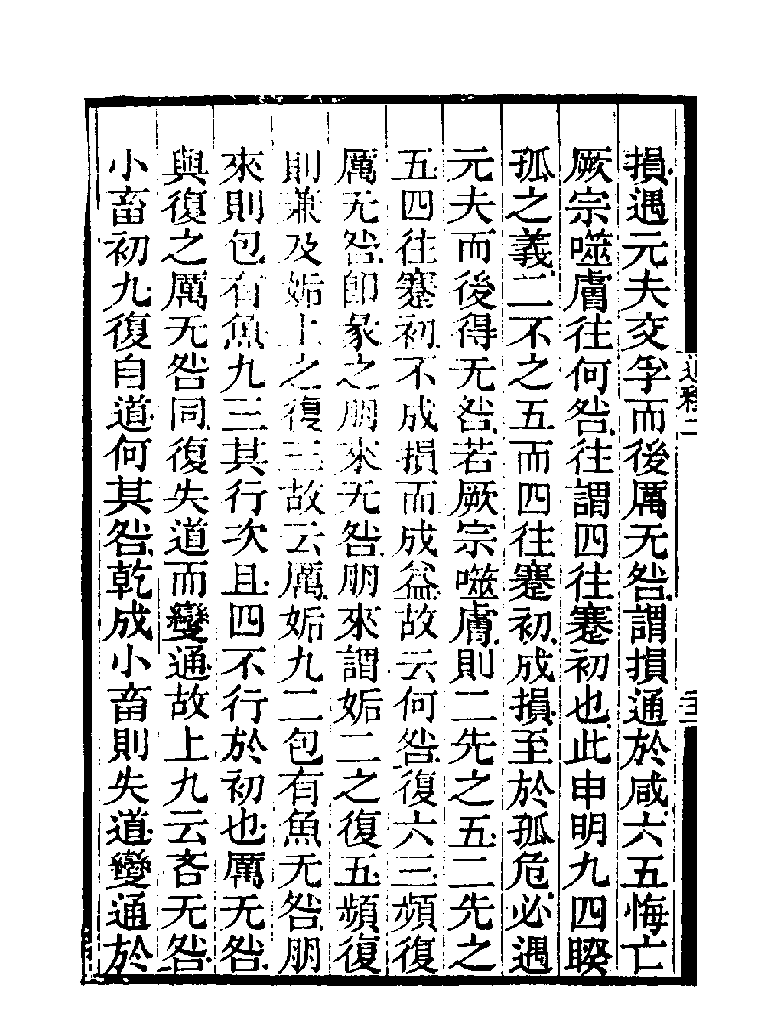 損遇元夫交孚而後厲无咎謂損通於咸六五悔亡
厥宗噬膚往何咎往謂四往蹇初也此申明九四睽
孤之義二不之五而四往蹇初成損至於孤危必遇
元夫而後得无咎若厥宗噬膚則二先之五二先之
五四往蹇初不成損而成益故云何咎復六三頻復
厲无咎卽彖之朋來无咎朋來謂姤二之復五頻復
則兼及姤上之復三故云厲姤九二包有魚无咎朋
來則包有魚九三其行次且四不行於初也厲无咎
與復之厲无咎同復失道而變通故上九云吝无咎
小畜初九復自道何其咎乾成小畜則失道變通於
通釋二